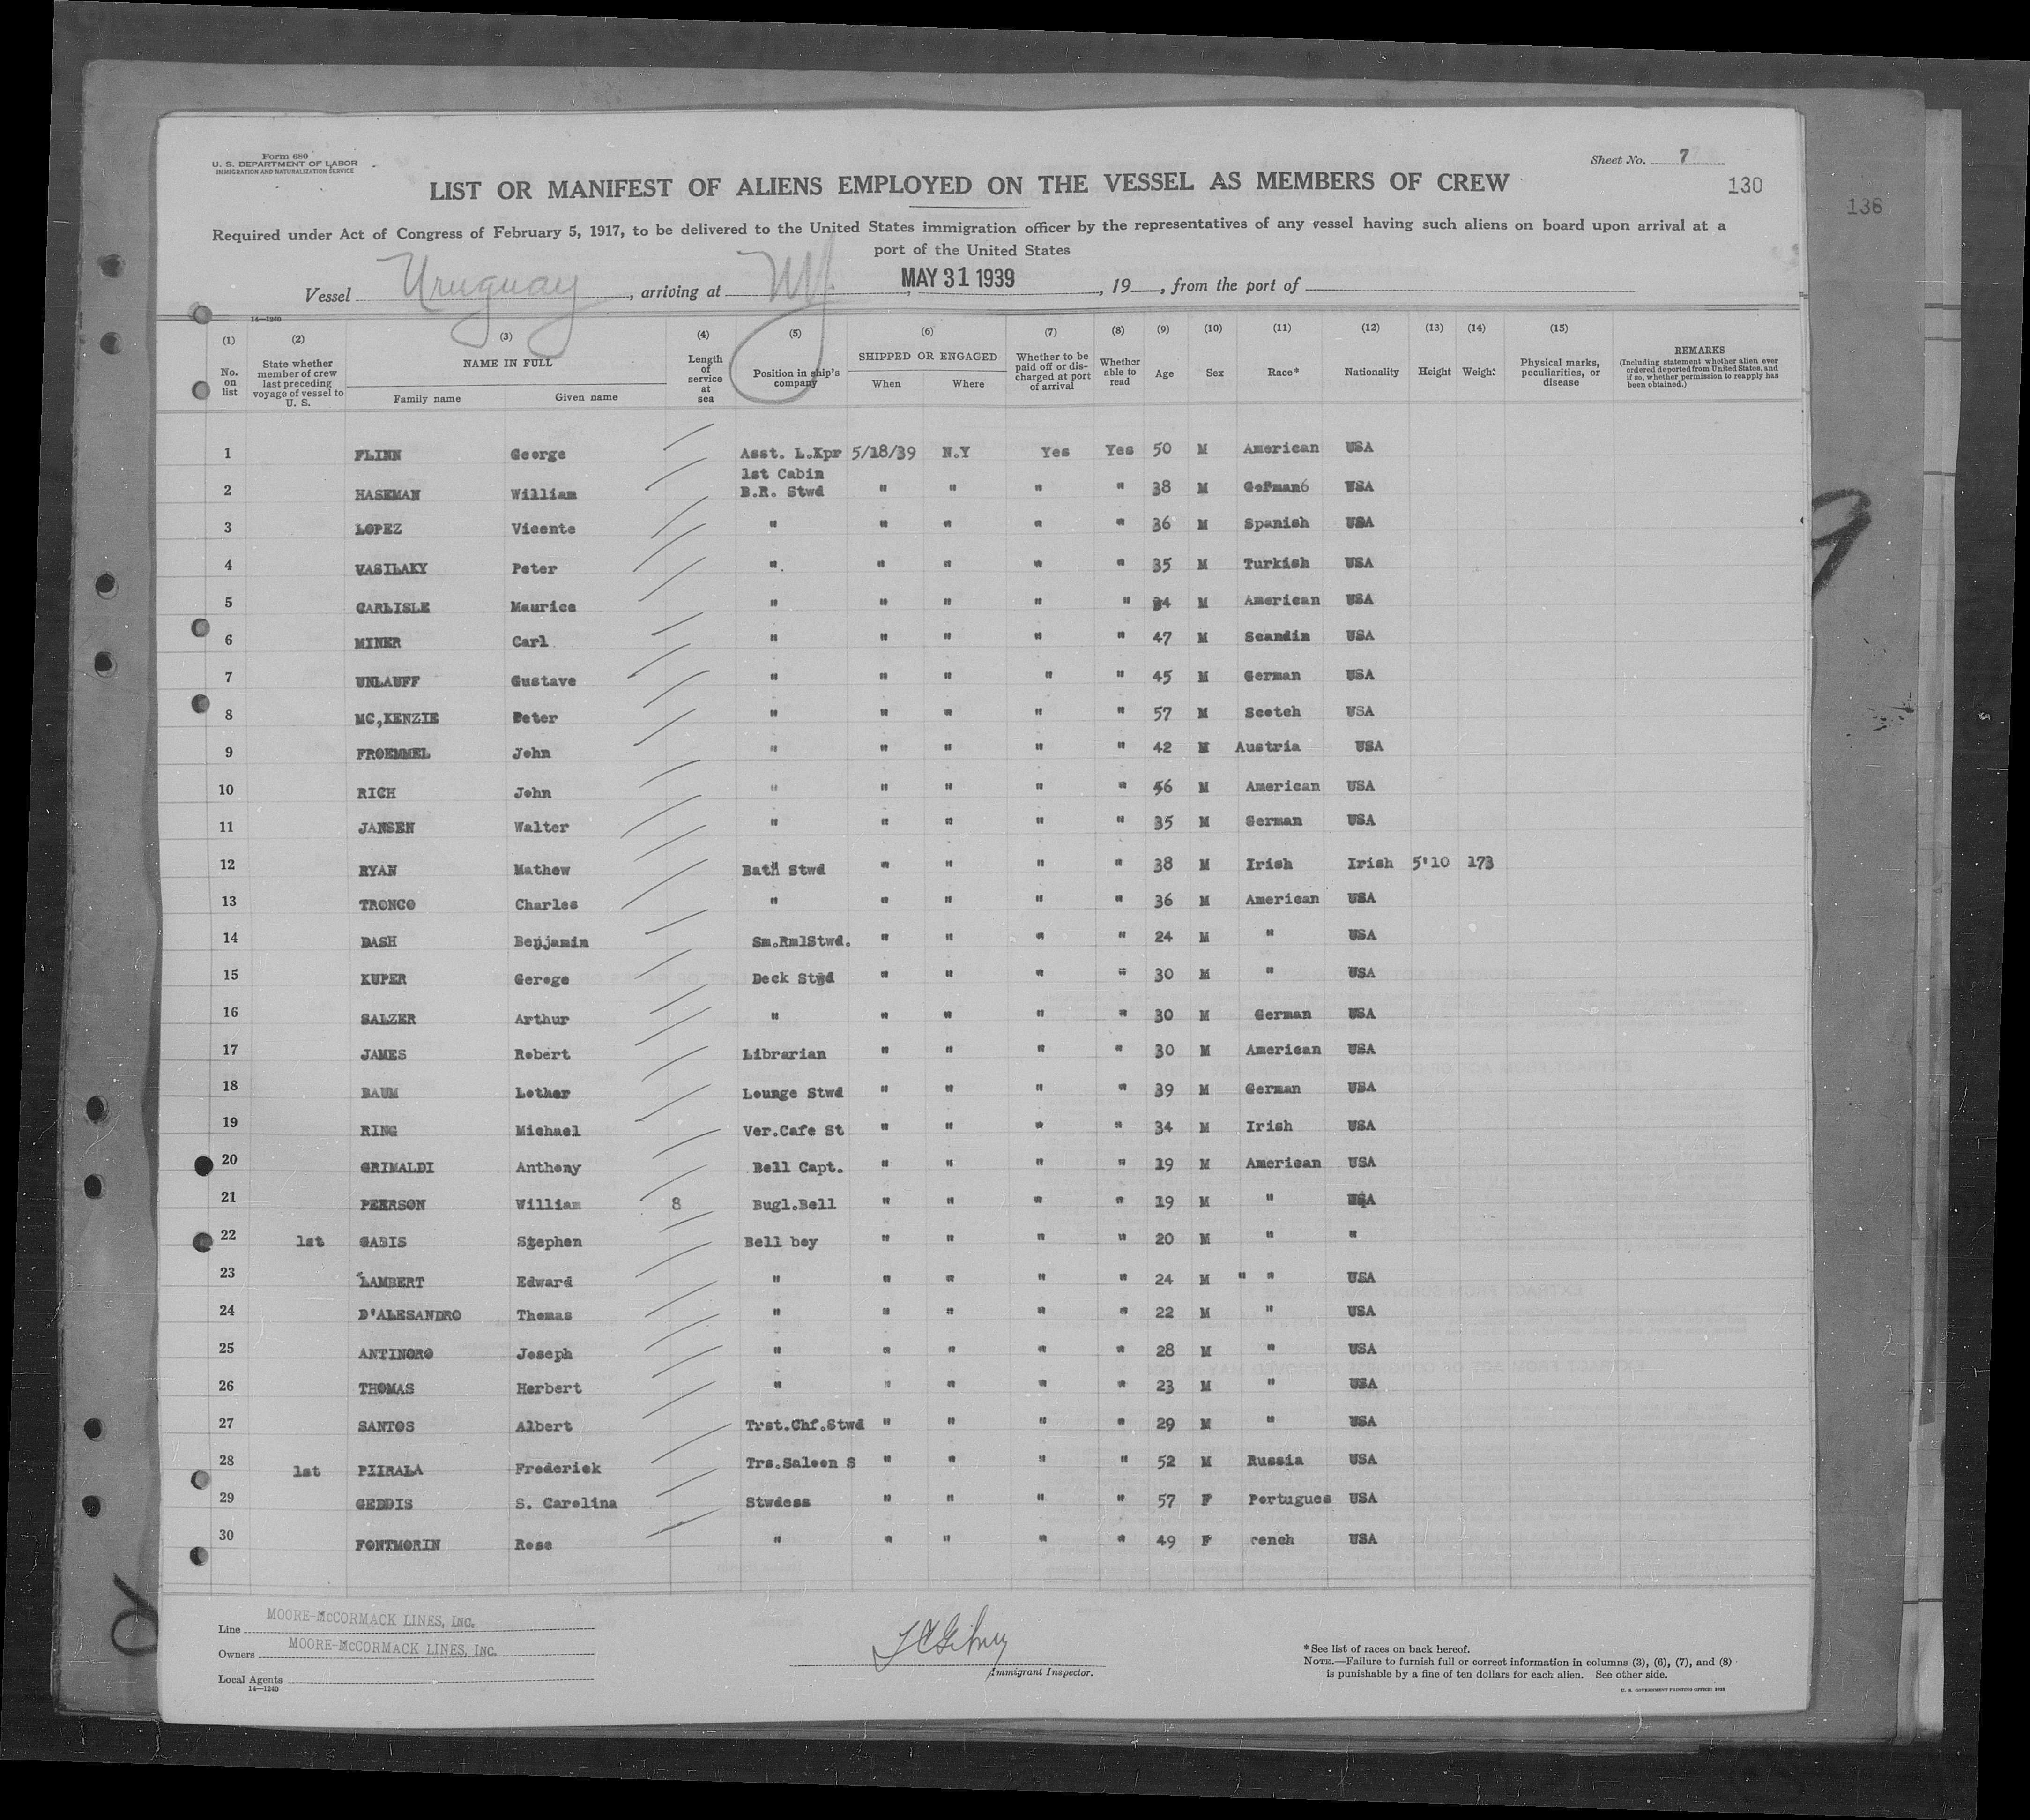 Form 680
U. S. DEPARTMENT OF LABOR
IMMIGRATION AND NATURALIZATION SERVICE
Sheet No. 7
LIST OR MANIFEST OF ALIENS EMPLOYED ON THE VESSEL AS MEMBERS OF CREW
130
136
Required under Act of Congress of February 5, 1917, to be delivered to the United States immigration officer by the representatives of any vessel having such aliens on board upon arrival at a
port of the United States
Vessel Uruguay, arriving at NY, MAY 31 1939, 19, from the port of
14—1240
(1) (2) (3) (4) (5) (6) (7) (8) (9) (10) (11) (12) (13) (14) (15)
No. on list State whether member of crew last preceding voyage of vessel to U. S. NAME IN FULL Family name Given name Length of service at sea Position in ship's company SHIPPED OR ENGAGED When Where Whether to be paid off or discharged at port of arrival Whether able to read Age Sex Race* Nationality Height Weight Physical marks, peculiarities, or disease REMARKS (Including statement whether alien ever ordered deported from United States, and if so, whether permission to reapply has been obtained.)
1 FLINN George Asst. L.Kpr 5/18/39 N.Y Yes Yes 50 M American USA
1st Cabin
2 HASEMAN William B.R. Stwd " " " " 38 M German6 USA
3 LOPEZ Vicente " " " " " 36 M Spanish USA
4 VASILAKY Peter ". " " " " 35 M Turkish USA
5 CARLISLE Maurice " " " " " 34 M American USA
6 MINER Carl " " " " " 47 M Scandin USA
7 UNLAUFF Gustave " " " " " 45 M German USA
8 MC,KENZIE Peter " " " " " 57 M Scotch USA
9 FROEMMEL John " " " " " 42 M Austria USA
10 RICH John " " " " " 56 M American USA
11 JANSEN Walter " " " " " 35 M German USA
12 RYAN Mathew Bath Stwd " " " " 38 M Irish Irish 5'10 173
13 TRONCO Charles " " " " " 36 M American USA
14 DASH Benjamin Sm.RmlStwd. " " " " 24 M " USA
15 KUPER Geroge Deck Stwd " " " " 30 M " USA
16 SALZER Arthur " " " " " 30 M German USA
17 JAMES Robert Librarian " " " " 30 M American USA
18 BAUM Lothar Lounge Stwd " " " " 39 M German USA
19 RING Michael Ver.Cafe St " " " " 34 M Irish USA
20 GRIMALDI Anthony Bell Capt. " " " " 19 M American USA
21 PEERSON William 8 Bugl.Bell " " " " 19 M " USA
22 1st GABIS Stephen Bell boy " " " " 20 M " "
23 LAMBERT Edward " " " " " 24 M " " USA
24 D'ALESANDRO Thomas " " " " " 22 M " USA
25 ANTINORO Joseph " " " " " 28 M " USA
26 THOMAS Herbert " " " " " 23 M " USA
27 SANTOS Albert Trst.Chf.Stwd " " " " 29 M " USA
28 1st PIIRALA Frederick Trs.Saloon S " " " " 52 M Russia USA
29 GEDDIS S. Carolina Stwdess " " " " 57 F Portugues USA
30 FONTMORIN Rose " " " " " 49 F rench USA
Line MOORE-McCORMACK LINES, INC.
Owners MOORE-McCORMACK LINES, INC.
Local Agents
14—1240
Immigrant Inspector.
*See list of races on back hereof.
NOTE.—Failure to furnish full or correct information in columns (3), (6), (7), and (8)
is punishable by a fine of ten dollars for each alien. See other side.